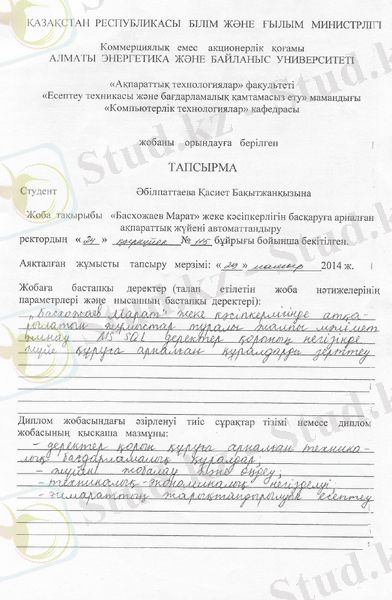 ҚАЗАҚСТАН РЕСПУБЛИКАСЫ БІЛІМ ЖӘНЕ ҒЫЛЫМ МИНИСТРЛІГІ
Коммерциялық емес акционерлік қоғамы
АЛМАТЫ ЭНЕРГЕТИКА ЖӘНЕ БАЙЛАНЫС УНИВЕРСИТЕТІ
«Ақпараттық технологиялар» факультеті
«Есептеу техникасы және бағдарламалық қамтамасыз ету» мамандығы
«Компьютерлік технологиялар» кафедрасы
жобаны орындауға берілген
ТАПСЫРМА
Студент Әбілпаттаева Қасиет Бақытжанқызына
Жоба тақырыбы «Басхожаев Марат» жеке кәсіпкерлігін басқаруға арналған
ақпараттық жүйені автоматтандыру
ректордың «24» қыркүйек № 115 бұйрығы бойынша бекітілген.
Аяқталған жұмысты тапсыру мерзімі: «29» мамыр 2014 ж.
Жобаға бастапқы деректер (талап етілетін жоба нәтижелерінің
параметрлері және нысанның бастапқы деректері):
„Басхожаев Марат" жеке кәсіпкерлігінде атқа-
рылатын жұмыстар туралы жалпы мәлімет
алынау MS SQL деректер қорының негізінде
жүйе құруға арналған құралдарды зерттеу
Диплом жобасындағы әзірленуі тиіс сұрақтар тізімі немесе диплом
жобасының қысқаша мазмұны:
- деректер қорын құруға арналған техника-
лық бағдарламалық құралдар;
- жүйені жобалау және өңдеу;
- техникалық-экономикалық негіздеуі;
- ғимараттың жарықтандырылуын есептеу
Stud.kz - Stud.kz
Stud.kz
Stud.kz
Stud.kz